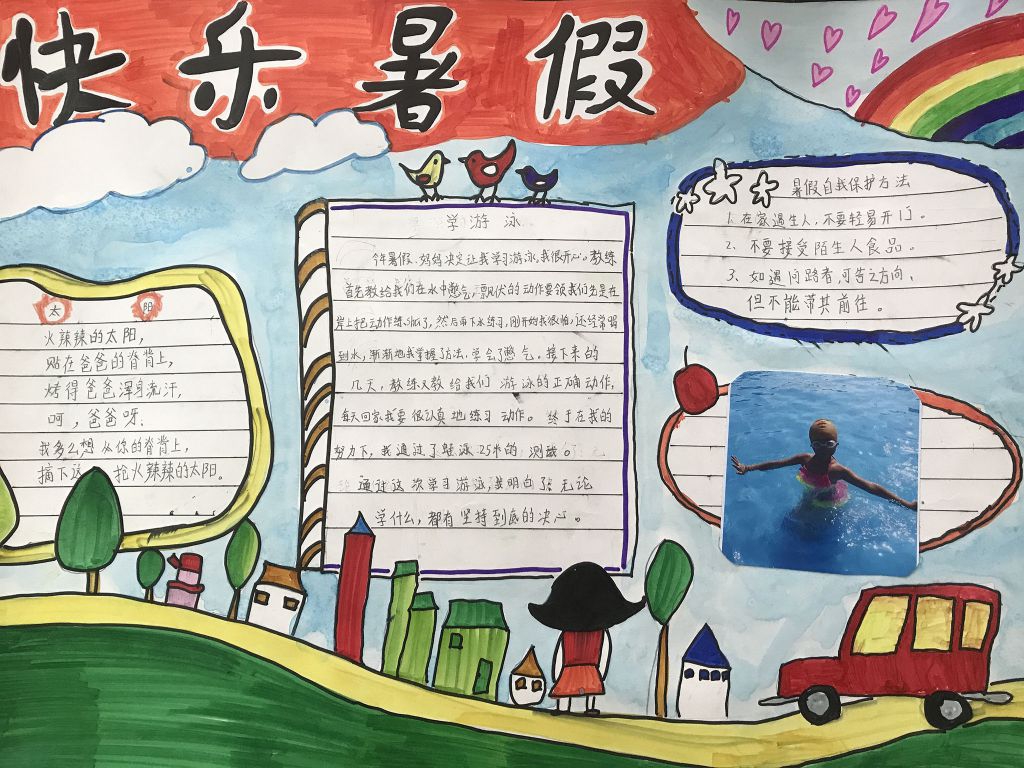 快乐暑假
太阳
火辣辣的太阳,
贴在爸爸的脊背上,
烤得爸爸浑身流汗,
呵,爸爸呀,
我多么想从你的脊背上,
摘下这 抢火辣辣的太阳。
学游泳
今年暑假,妈妈决定让我学习游泳,我很开心。教练
首先教给我们在水中憋气,飘伏的动作要领我们先是在
岸上把动作练 了,然后再下水练习,刚开始我很怕,还经常喝
到水,渐渐地我掌握了方法,学会了憋气。接下来的
几天,教练又教给我们游泳的正确动作,
每天回家我要很认真地练习动作。终于在我的
努力下,我通过了蛙泳25米的,测试。
通过这次学习游泳,我明白了 无论
学什么,都有坚持到底的决心。
暑假自我保护方法
1.在家遇生人,不要轻易开门。
2.不要接受陌生人食品。
3.如遇问路者,可告之方向,
但不能带其前往。